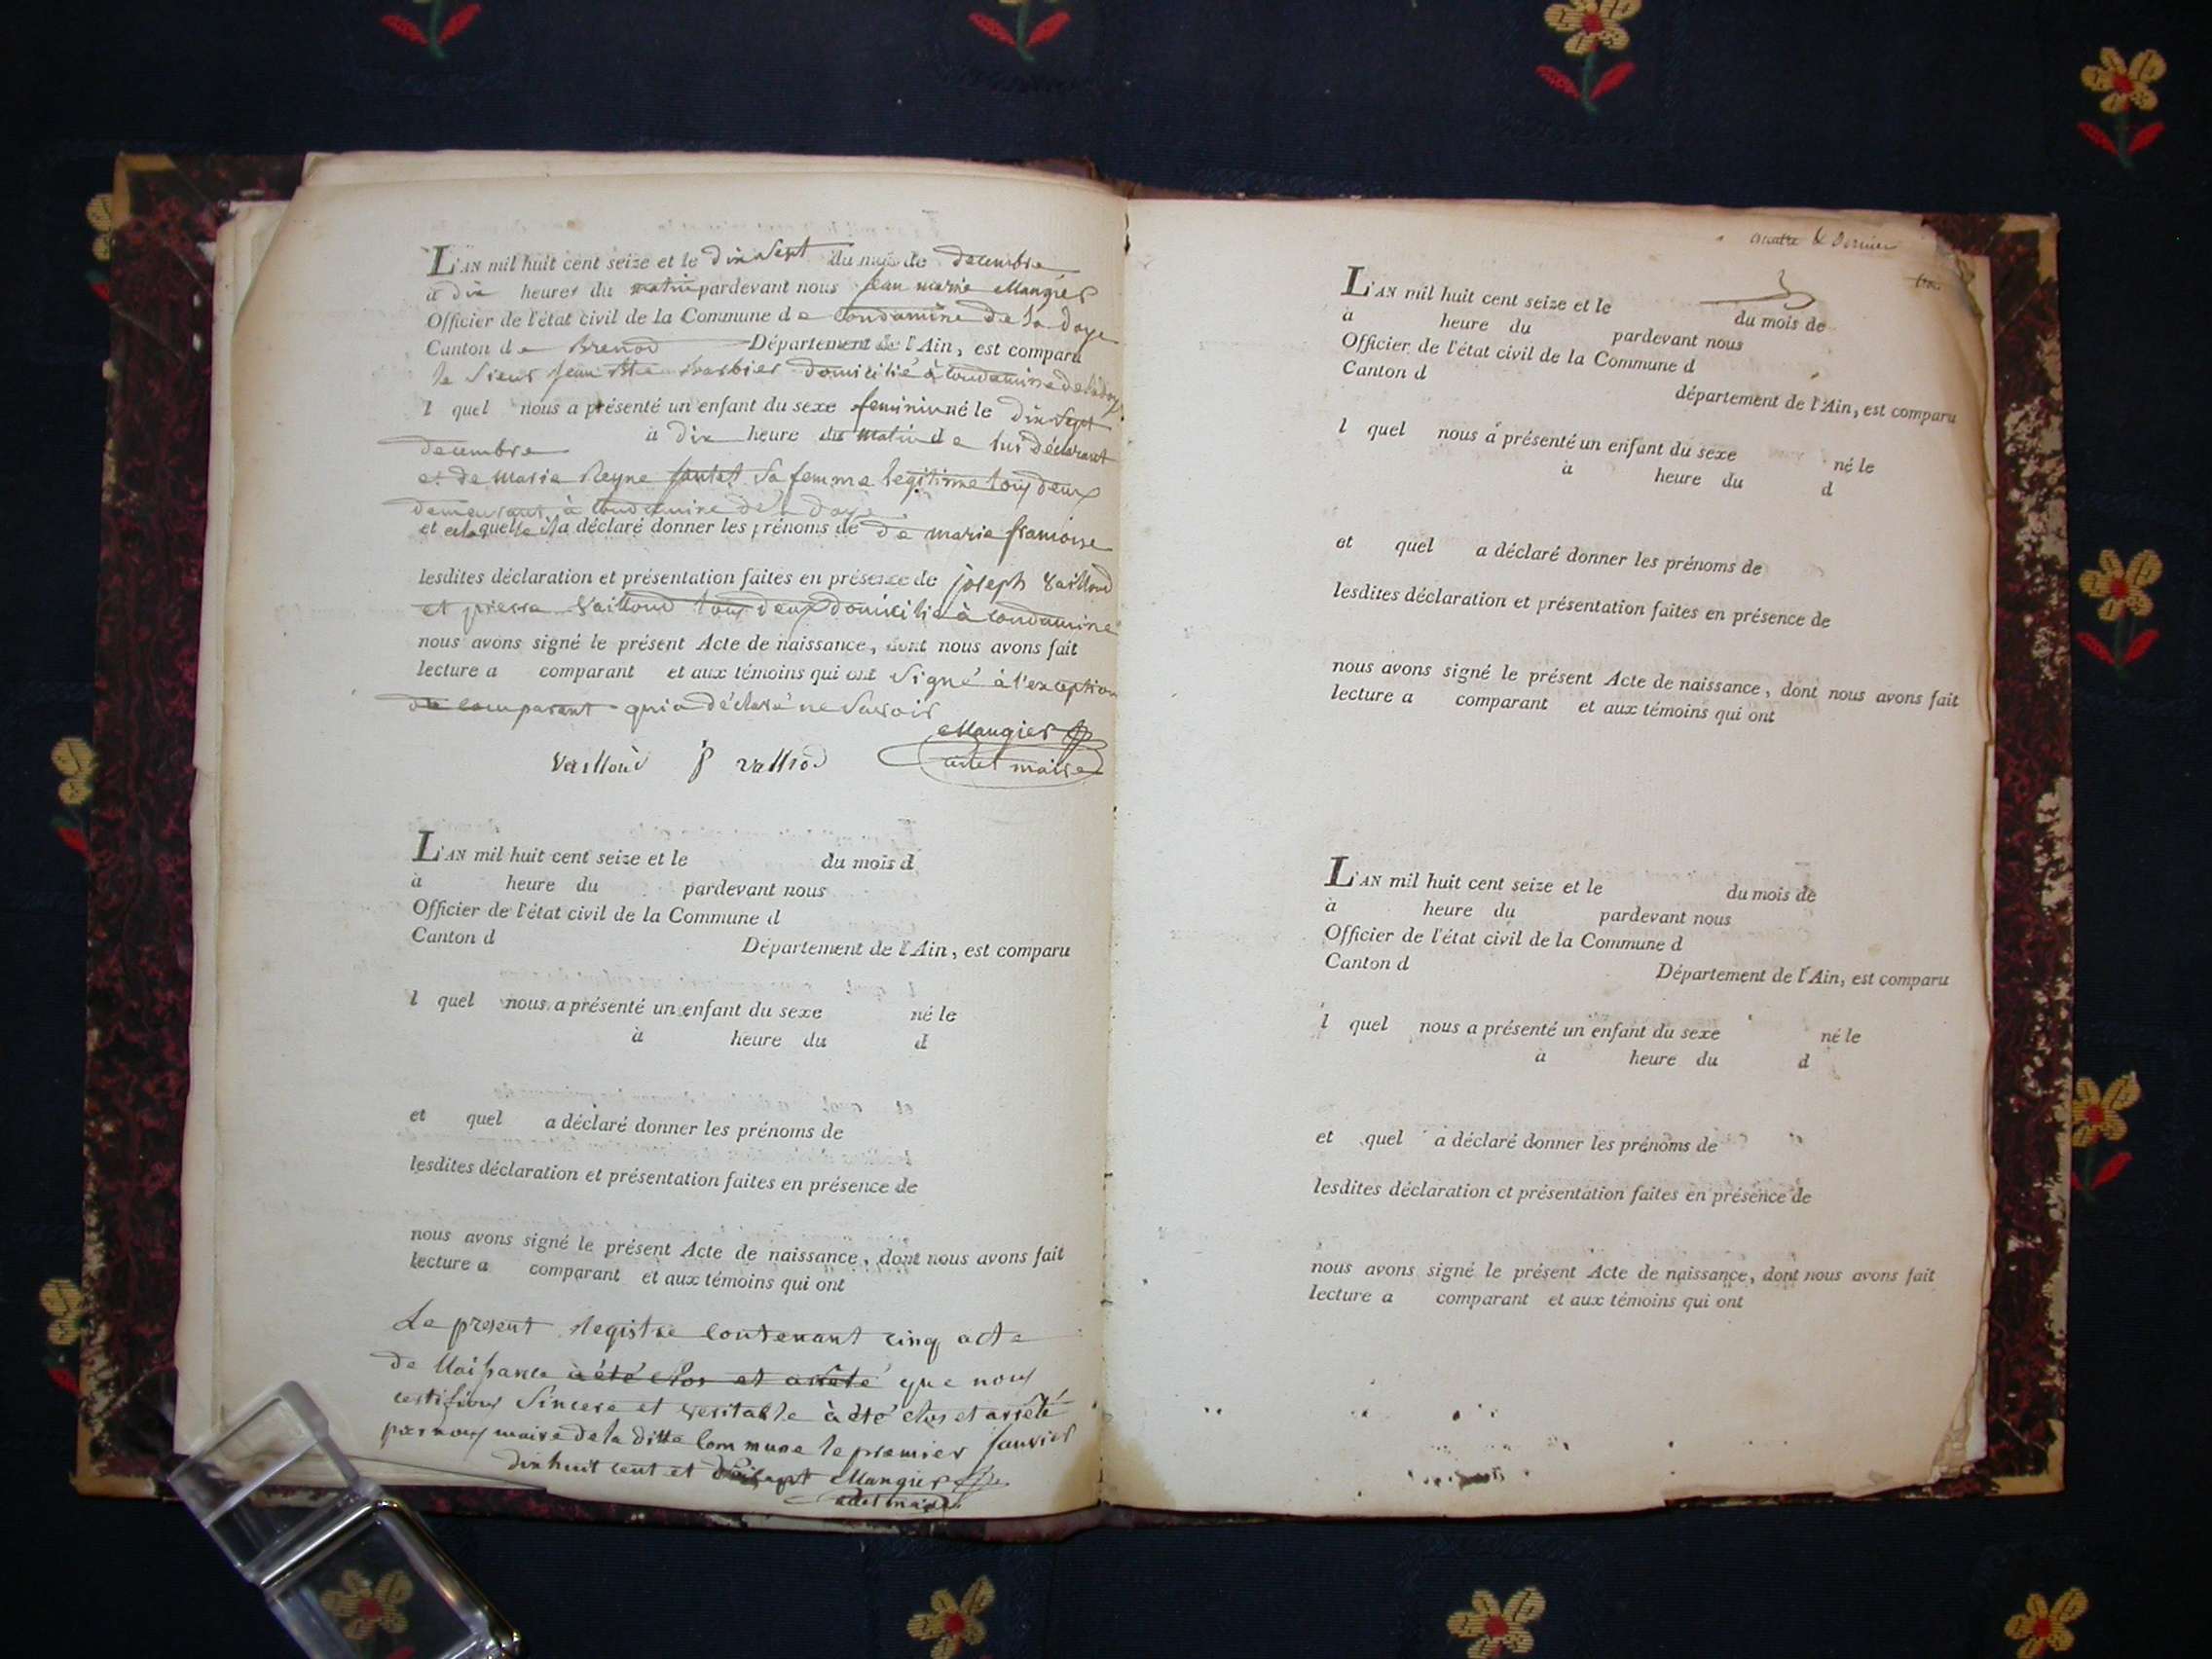 L'AN mil huit cent seize et le dix Sept du mois de decembre
à dix heures du matin pardevant nous jean marie Mangier
Officier de l'état civil de la Commune de Condamine de la doye
Canton de Brenod Département de l'Ain, est comparu
le Sieur jean Bte barbier domicilié à Condamine de la doye
l quel nous a présenté un enfant du sexe feminin né le dix Sept
decembre à dix heure du matin de lui déclarant
et de marie Reyne Sa femme legitime tous deux
demeurant à Condamine de la doye
et a laquelle il a déclaré donner les prénoms de de marie francoise
lesdites déclaration et présentation faites en présence de joseph Vailloud
et pierre Vailloud tous deux domicilié à Condamine
nous avons signé le présent Acte de naissance, dont nous avons fait
lecture a comparant et aux témoins qui ont Signé à l'exception
de comparant qui a déclaré ne Savoir
Mangier
Vailloud J vallod adet maire
L'AN mil huit cent seize et le du mois d
à heure du pardevant nous
Officier de l'état civil de la Commune d
Canton d Département de l'Ain, est comparu
l quel nous a présenté un enfant du sexe né le
à heure du d
et quel a déclaré donner les prénoms de
lesdites déclaration et présentation faites en présence de
nous avons signé le présent Acte de naissance, dont nous avons fait
lecture a comparant et aux témoins qui ont
Le present Registre contenant cinq acte
de Naissance à été clos et arrêté que nous
certifions Sincere et veritable à été clos et arrêté
par nous maire de la ditte Commune le premier janvier
dix huit cent et dix sept Mangier
adet maire
et dernier
L'AN mil huit cent seize et le du mois de
à heure du pardevant nous
Officier de l'état civil de la Commune d
Canton d département de l'Ain, est comparu
l quel nous a présenté un enfant du sexe né le
à heure du d
et quel a déclaré donner les prénoms de
lesdites déclaration et présentation faites en présence de
nous avons signé le présent Acte de naissance, dont nous avons fait
lecture a comparant et aux témoins qui ont
L'AN mil huit cent seize et le du mois de
à heure du pardevant nous
Officier de l'état civil de la Commune d
Canton d Département de l'Ain, est comparu
l quel nous a présenté un enfant du sexe né le
à heure du d
et quel a déclaré donner les prénoms de
lesdites déclaration et présentation faites en présence de
nous avons signé le présent Acte de naissance, dont nous avons fait
lecture a comparant et aux témoins qui ont